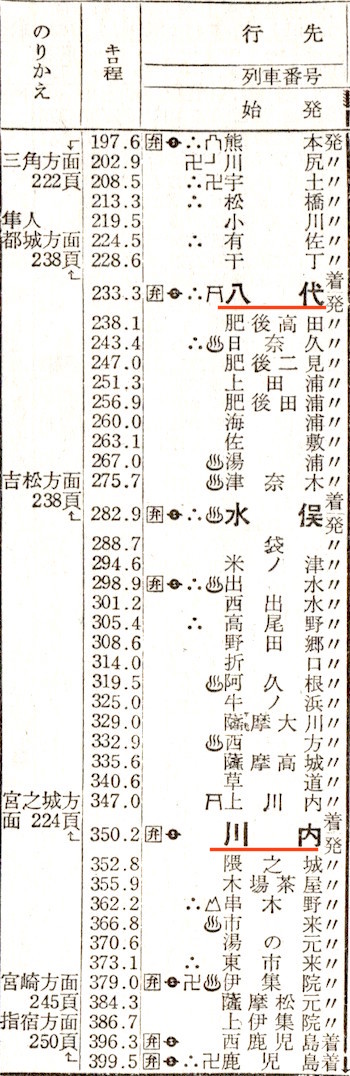 のりかえ
キロ程
行先
列車番号
始発
197.6 弁 ∴ 熊本発
三角方面 202.9 卍 川尻〃
222頁 208.5 ∴卍宇土〃
213.3 ∴ 松橋〃
隼人 219.5 小川〃
都城方面 224.5 ∴ 有佐〃
238頁 228.6 千丁〃
233.3 弁 ∴ 八代着発
238.1 肥後高田〃
243.4 ∴♨日奈久〃
247.0 肥後二見〃
251.3 上田浦〃
256.9 肥後田浦〃
260.0 海浦〃
263.1 佐敷〃
267.0 ♨湯浦〃
吉松方面 275.7 ♨津奈木〃
238頁 282.9 弁 ∴♨水俣着発
288.7 袋〃
294.6 米ノ津〃
298.9 弁 ∴♨出水〃
301.2 西出水〃
305.4 ∴ 高尾野〃
308.6 野田郷〃
314.0 折口〃
319.5 ♨阿久根〃
325.0 牛ノ浜〃
329.0 薩摩大川〃
332.9 ♨西方〃
335.6 薩摩高城〃
340.6 草道〃
宮之城方 347.0 上川内〃
面 224頁 350.2 弁 川内着発
352.8 隈之城〃
355.9 木場茶屋〃
362.2 ∴ 串木野〃
366.8 ♨市来〃
370.6 湯の元〃
373.1 ∴ 東市来〃
宮崎方面 379.0 弁 ∴卍♨伊集院〃
245頁 384.3 薩摩松元〃
指宿方面 386.7 上伊集院〃
250頁 396.3 弁 西鹿児島着
399.5 弁 ∴卍鹿児島着